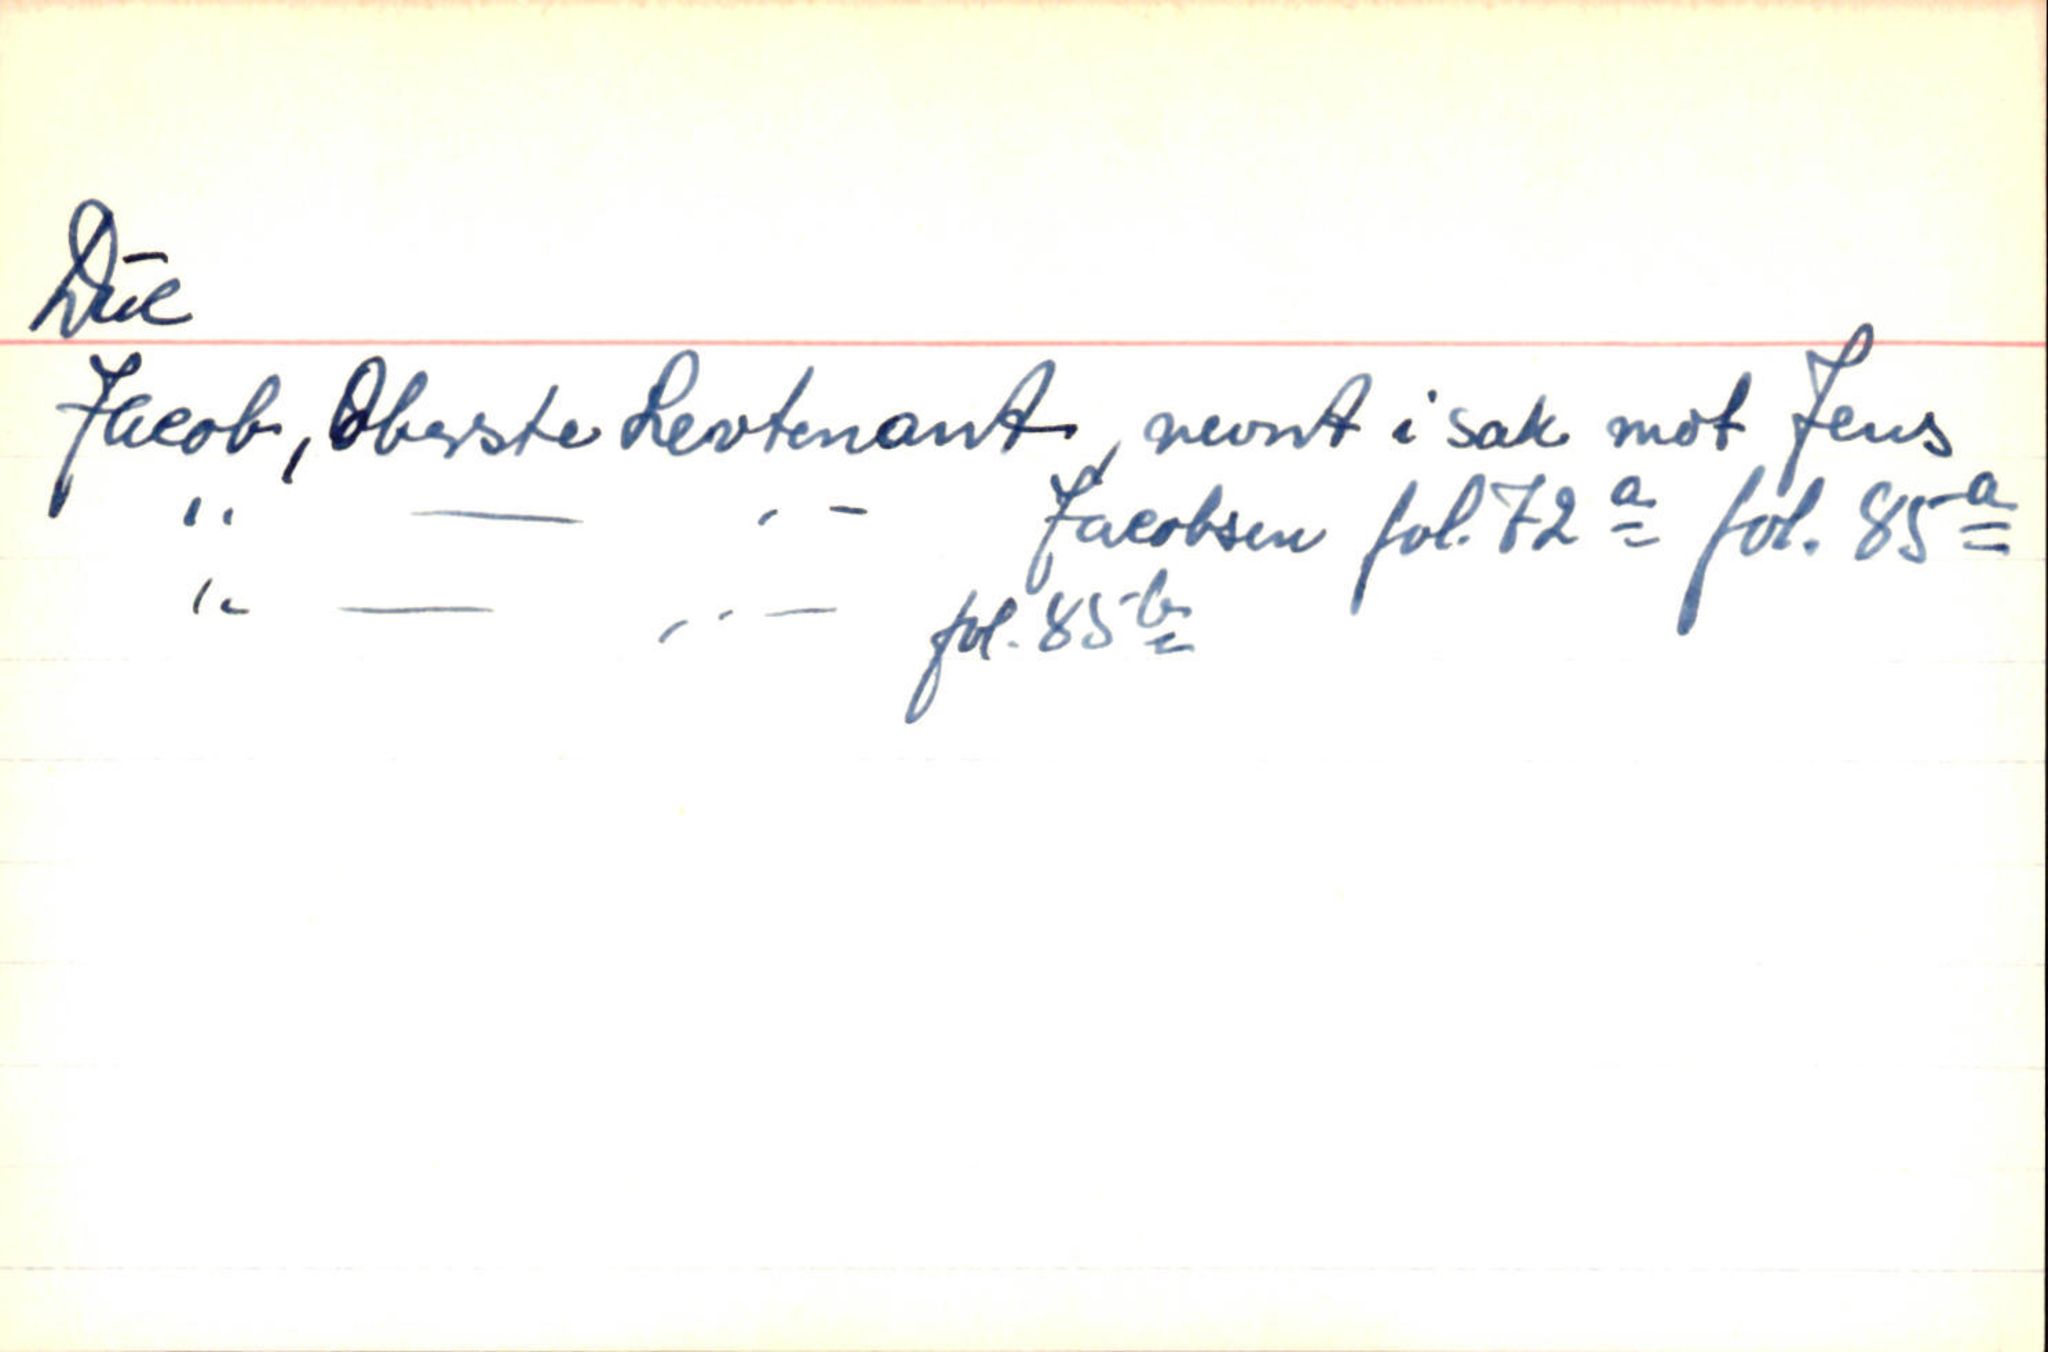 Due
Jacob, Oberste Levtenant, nevnt i sak mot Jens
" — " — Jacobsen fol. 72 a fol. 85 a
" — " — fol. 85 b